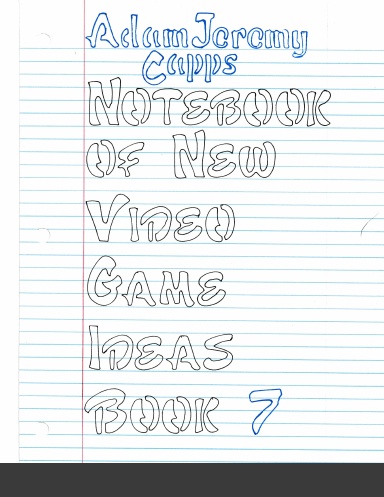 Adam Jeremy
Capps
NOTEBOOK
OF NEW
VIDEO
GAME
IDEAS
BOOK 7